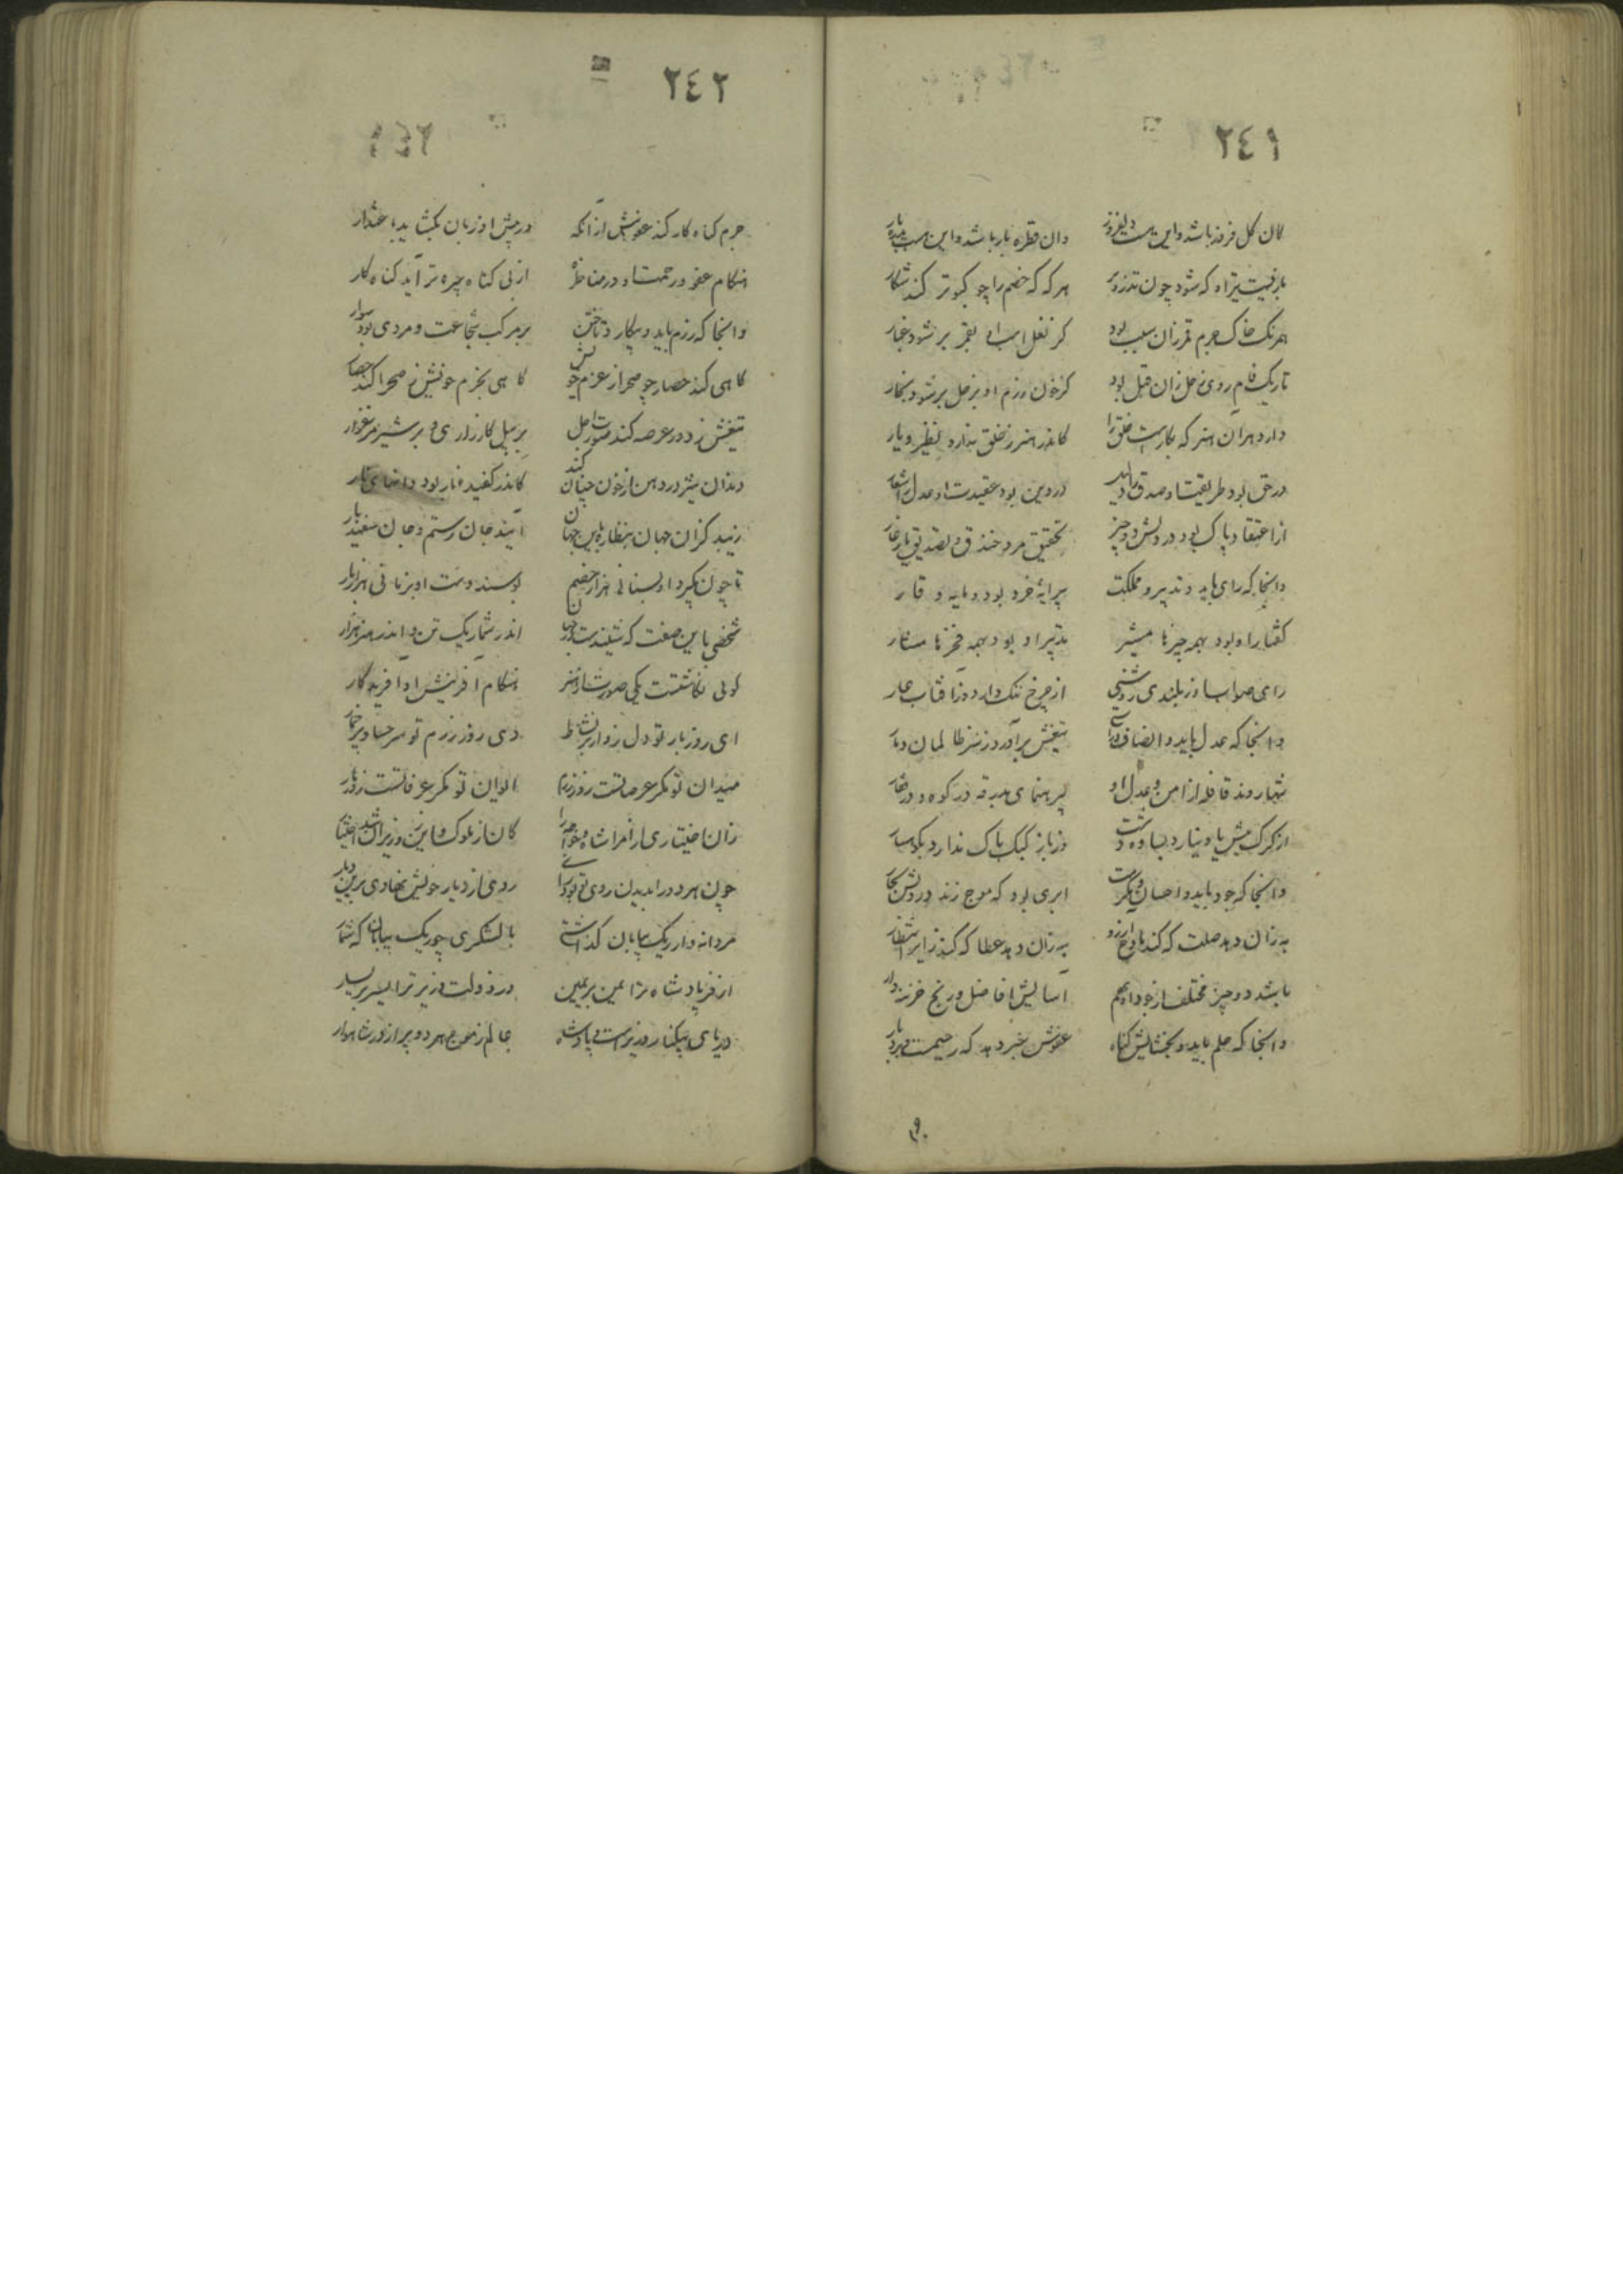 ٢٤١
کان کل فروند باشد و این هست دلفروز
وان قطره بار باشد و این هست بدره بار
بازیست تیر او که شود چون تذرو پر
هر که که خصم را چو کبوتر کند شکار
همرنک خاک جرم قمر زان سبب بود
کز نعل اسب او بقمر بر شود غبار
تاریک فام روی زحل زان قبل بود
کز خون رزم او بزحل بر شود بخار
دارد هر آن هنر که بکارست خلق را
کاندر هنر ز خلق ندارد نظیر و یار
در حق بود طریقت او صدق را دلیل
در دین بود عقیدت او عدل را شعار
از اعتقاد پاک بود در دلش دو چیز
تحقیق مرد خندق و تصدیق یار غار
وانجا که رای باید و تدبیر مملکت
پیرایه خرد بود و مایه وقار
کفتار او بود بهمه چیزها مشیر
تدبیر او بود بهمه فخرها مشار
رای صواب او ز بلندی و روشنی
از چرخ ننک دارد وز آفتاب عار
وانجا که عدل باید و انصاف و راستی
تیغش بر آورد ز سر ظالمان دمار
تنها روند قافله از امن و عدل او
بی رهنمای و بدرقه در کوه و در قفار
از کرک میش یاد نیارد بساده دشت
وز باز کبک باک ندارد بکوهسار
وانجا که جود باید و احسان و مکرمت
ابری بود که موج زند در دلش بحار
به زان دهد صلت که کند مادح آرزو
به زان دهد عطا که کند زایر انتظار
باشد دو چیز مختلف از جود او بهم
آسایش افاضل و رنج خزینه دار
وانجا که حلم باید و بخشایش کناه
عفوش خبر دهد که رحیمست و بردبار
٢٤٢
جرم کناه کار کند عفوش از آنکه
در پیش او زبان بکشاید باعتذار
هنکام عفو و رحمت او در مناظره
از بی کناه چیره تر آید کناه کار
وانجا که رزم باید و پیکار و تاختن
بر مرکب شجاعت و مردی بود سوار
کاهی کند حصار چو صحرا ز عزم خویش
کاهی بحزم خویش ز صحرا کند حصار
تیغش ز دور عرصه کند صورت اجل
بر پیل کارزاری و بر شیر مرغزار
دندان شیر در دهن از خون چنان کند
کاندر کفیده نار بود دانهای نار
زیبد کزان جهان بنظاره باین جهان
آیند جان رستم و جان سفندیار
تا چون بکیرد او بسنانی هزار خصم
بوسند دست او بزمانی هزار بار
شخصی باین صفت که شنیدست در جهان
اندر شمار یک تن و اندر هنر هزار
کوئی نکاشتست یکی صورت از هنر
هنکام آفرینش او آفریدکار
ای روز بار تو دل زوار پر نشاط
وی روز رزم تو سر حساد پر خمار
میدان تو مکر عرصاتست روز رزم
ایوان تو مکر عرفاتست روز بار
زان اختیاری از امرا شاه و خواجه را
کان از ملوک و این ز وزیران شد اختیار
چون هر دو را بدیدن روی تو بود رای
روی از دیار خویش نهادی برین دیار
مردانه وار ریک بیابان کذاشتی
با لشکری چو ریک بیابان که شمار
از فر پادشاه ترا یمن بر یمین
وز دولت وزیر ترا یسر بر یسار
دریای بیکنار وزیرست و پادشاه
عالم ز موج هر دو پر از در شاهوار